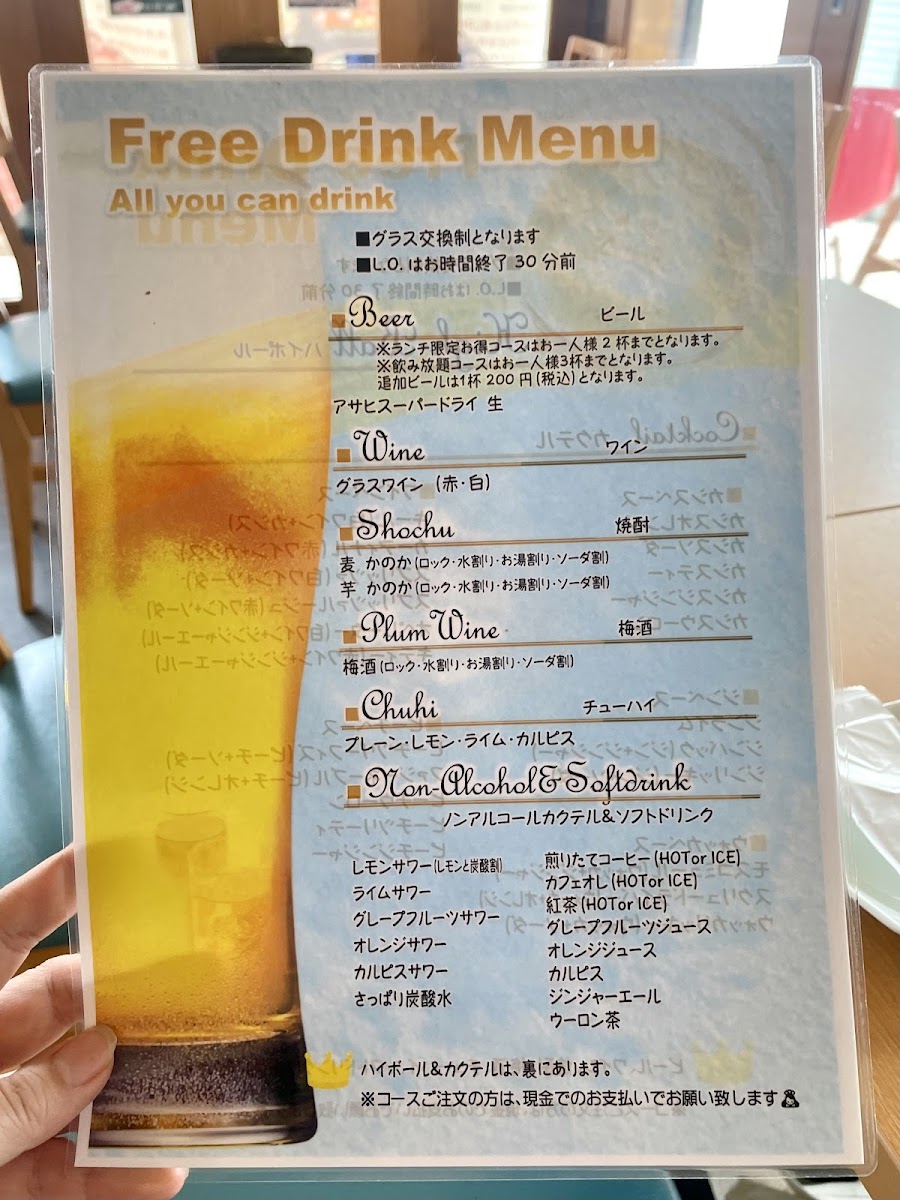 Free Drink Menu
All you can drink
■グラス交換制となります
■L.O. はお時間終了 30 分前
Beer ビール
※ランチ限定お得コースはお一人様 2 杯までとなります。
※飲み放題コースはお一人様3杯までとなります。
追加ビールは1杯 200 円(税込)となります。
アサヒスーパードライ 生
Wine ワイン
グラスワイン (赤・白)
Shochu 焼酎
麦 かのか(ロック・水割り・お湯割り・ソーダ割)
芋 かのか(ロック・水割り・お湯割り・ソーダ割)
Plum Wine 梅酒
梅酒(ロック・水割り・お湯割り・ソーダ割)
Chuhi チューハイ
プレーン・レモン・ライム・カルピス
Non-Alcohol&Softdrink
ノンアルコールカクテル&ソフトドリンク
レモンサワー(レモンと炭酸割)
ライムサワー
グレープフルーツサワー
オレンジサワー
カルピスサワー
さっぱり炭酸水
煎りたてコーヒー(HOTor ICE)
カフェオレ(HOTor ICE)
紅茶(HOTor ICE)
グレープフルーツジュース
オレンジジュース
カルピス
ジンジャーエール
ウーロン茶
ハイボール&カクテルは、裏にあります。
※コースご注文の方は、現金でのお支払いでお願い致します